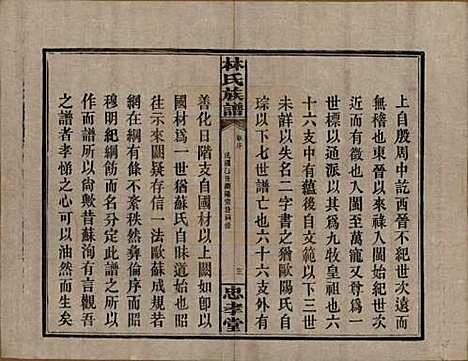 上自殷周中訖西晉不紀世次遠而
無稽也東晉以來入閩始紀世次近
而有徵也入閩至萬寵又尊爲一
世標以通派以其爲九牧皇祖也六
十六支中有蘊後自文範以下三世
未詳以失名二字書之猶歐陽氏自
琮以下七世譜亡也六十六支外有
林氏族譜
卷序
民國乙丑瀏陽棠市祠修
三
忠孝堂
善化日階支自國材以上闕如即以
國材爲一世猶蘇氏自味道始也他
往示來闕疑存信一法歐蘇成規若
綱在有條不紊秩然彝倫序而昭
穆明紀綱飭而名分定此譜之所以
作而譜所以尙歟昔蘇洵有言觀吾
之譜者孝悌之心可以油然而生矣